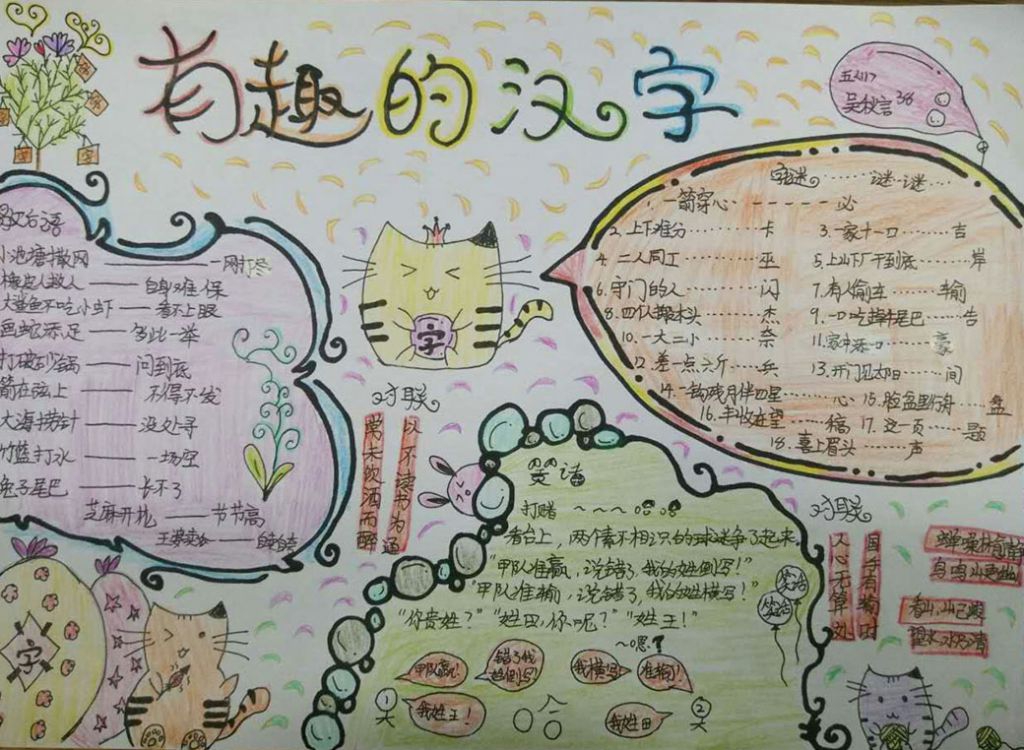 有趣的汉字
五(1)
吴秋言 38
歇后语
小池塘撒网——一网打尽
橡皮人救人——自身难保
大鲨鱼不吃小虾——看不上眼
画蛇添足——多此一举
打破沙锅——问到底
箭在弦上——不得不发
大海捞针——没处寻
竹篮打水——一场空
兔子尾巴——长不了
芝麻开花——节节高
字谜……谜谜……
1. 一箭穿心------必
2. 上下难分……卡
3. 一家十一口……吉
4. 二人同工……巫
5. 上山下厂干到底……岸
6. 守门的人……闪
7. 有人偷车……输
8. 四个操木头……杰
9. 一口吃掉牛尾巴……告
10. 一大二小……奈
11. 家中添一口……豪
12. 差一点六斤……兵
13. 开门见太阳……间
14. 一勾残月伴四星……心
15. 脸盆里行舟……盘
16. 丰收在望……稿
17. 这一页……题
18. 喜上眉头……声
对联
以不读书为通
常未饮酒而醉
笑话
打赌~~~
"看台上,两个素不相识的球迷争了起来
"甲队准赢,说错了,我的姓倒写!"
"甲队准输,说错了,我的姓横写!"
"你贵姓?""姓田,你呢?""姓王!"
~嘿!
甲队赢!
错了我姓倒写!
我横写
准输!
①
我姓王!
哈
我姓田
②
笑话
对联
国手有输时
人心无算处
蝉噪林愈静
鸟鸣山更幽
字
字